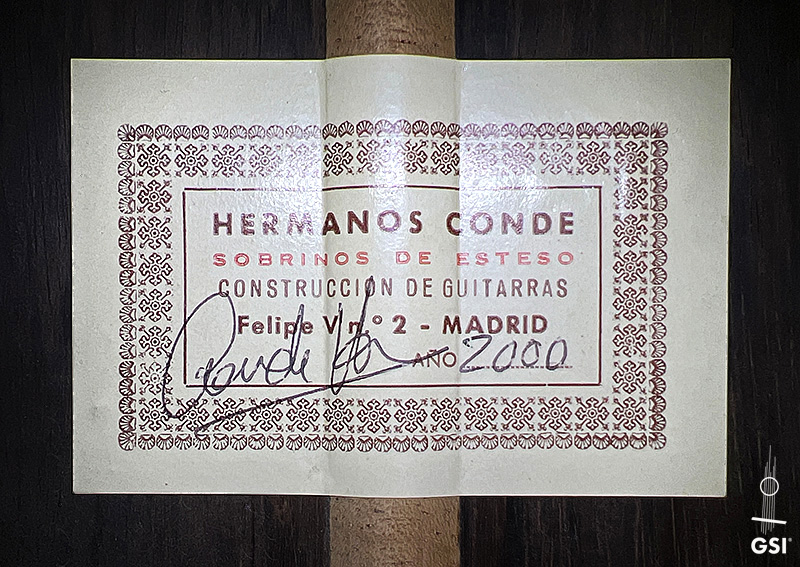 HERMANOS CONDE
SOBRINOS DE ESTESO
CONSTRUCCIÓN DE GUITARRAS
Felipe V n.º 2 - MADRID
Conde
AÑO 2000
GSI